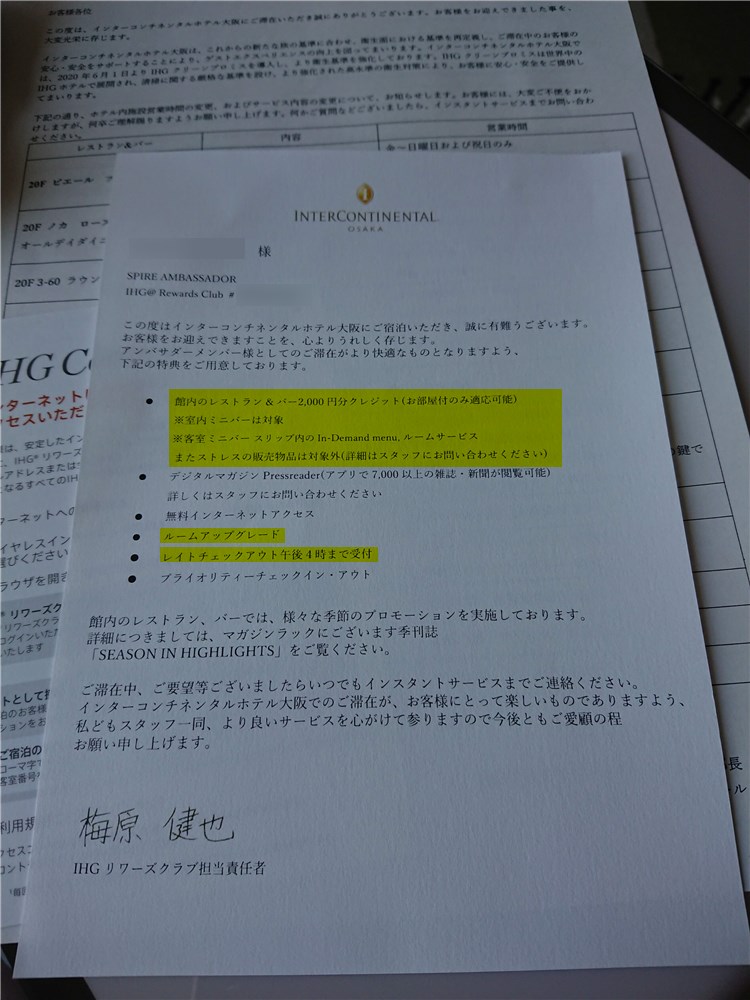 お客様各位
この度は、インターコンチネンタルホテル大阪にご滞在いただき誠にありがとうございます。お客様をお迎えできました事を、
大変光栄に存じます。
インターコンチネンタルホテル大阪は、これからの新たな旅の基準に合わせ、衛生面における基準を再定義し、ご滞在中のお客様の
安心・安全をサポートすることにより、ゲストエクスペリエンスの向上を図ってまいります。インターコンチネンタルホテル大阪で
は、2020年6月1日より IHG クリーンプロミスを導入し、より衛生基準を強化しております。IHG クリーンプロミスは世界中の
IHG ホテルで展開され、清掃に関する厳格な基準を設け、より強化された高水準の衛生対策により、お客様に安心・安全をご提供し
てまいります。
下記の通り、ホテル内施設営業時間の変更、およびサービス内容の変更について、お知らせします。お客様には、大変ご不便をおか
けしますが、何卒ご理解賜りますようお願い申し上げます。何かご質問などございましたら、インスタントサービスまでお問い合わ
せください。
レストラン&バー 内容 営業時間
金～日曜日および祝日のみ
20F ピエール
20F ノカ ロース
オールデイダイ
20F 3-60 ラウン
INTERCONTINENTAL
OSAKA
様
SPIRE AMBASSADOR
IHG@ Rewards Club #
この度はインターコンチネンタルホテル大阪にご宿泊いただき、誠に有難うございます。
お客様をお迎えできますことを、心よりうれしく存じます。
アンバサダーメンバー様としてのご滞在がより快適なものとなりますよう、
下記の特典をご用意しております。
● 館内のレストラン & バー2,000 円分クレジット(お部屋付のみ適応可能)
※室内ミニバーは対象
※客室ミニバー スリップ内の In-Demand menu, ルームサービス
またストレスの販売物品は対象外(詳細はスタッフにお問い合わせください)
● デジタルマガジン Pressreader(アプリで 7,000 以上の雑誌・新聞が閲覧可能)
詳しくはスタッフにお問い合わせください
● 無料インターネットアクセス
● ルームアップグレード
● レイトチェックアウト午後 4 時まで受付
● プライオリティーチェックイン・アウト
館内のレストラン、バーでは、様々な季節のプロモーションを実施しております。
詳細につきましては、マガジンラックにございます季刊誌
「SEASON IN HIGHLIGHTS」をご覧ください。
ご滞在中、ご要望等ございましたらいつでもインスタントサービスまでご連絡ください。
インターコンチネンタルホテル大阪でのご滞在が、お客様にとって楽しいものでありますよう、
私どもスタッフ一同、より良いサービスを心がけて参りますので今後ともご愛顧の程
お願い申し上げます。
梅原 健也
IHG リワーズクラブ担当責任者